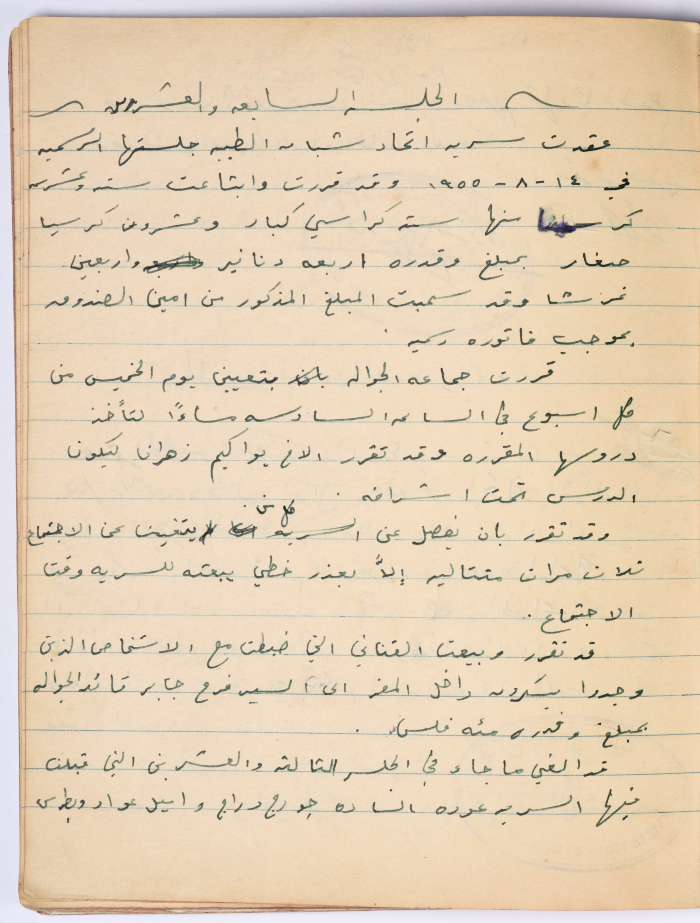 الجلسه السابعه والعشرون
عقدت سريه اتحاد شباب الطيبه جلستها الرسميه
في ١٤-٨-١٩٥٥ وقد قررت وابتاعت سته وعشرين
كرسيا منها سته كراسي كبار وعشرون كرسيا
صغار بمبلغ وقدره اربعه دنانير واربعين
غرشا وقد سحبت المبلغ المذكور من امين الصندوق
بموجب فاتوره رسميه
قررت جماعه الجواله بتعيين يوم الخميس من
كل اسبوع في الساعه السادسه مساءً لتأخذ
دروسها المقرره وقد تقرر الاخ يواكيم زهران ليكون
الدرس تحت اشرافه .
وقد تقرر بان يفصل عن السريه كل من يتغيب عن الاجتماع
ثلاث مرات متتاليه إلاَّ بعذر خطي يبعثه للسريه وقت
الاجتماع .
قد تقرر وبيعت القناني التي ضبطت مع الاشخاص الذين
وجدوا يسكرون داخل المقر الى السيد فرح جابر قائد الجواله
بمبلغ وقدره مئه فلس .
قد الغي ما جاء في الجلسه الثالثه والعشرين التي قبلت
فيها السريه عوده الساده جورج دراج واميل عواد وبطرس